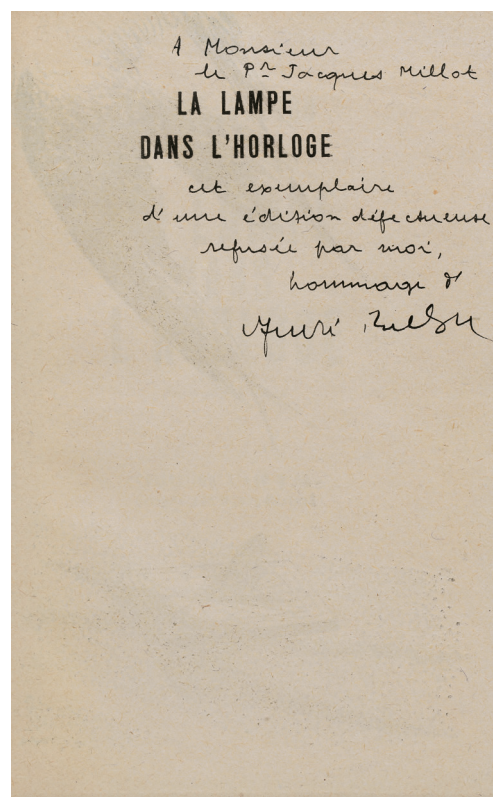 A Monsieur
le Pr Jacques Millot
LA LAMPE
DANS L'HORLOGE
cet exemplaire
d'une édition défectueuse
refusée par moi,
hommage d'
André Breton